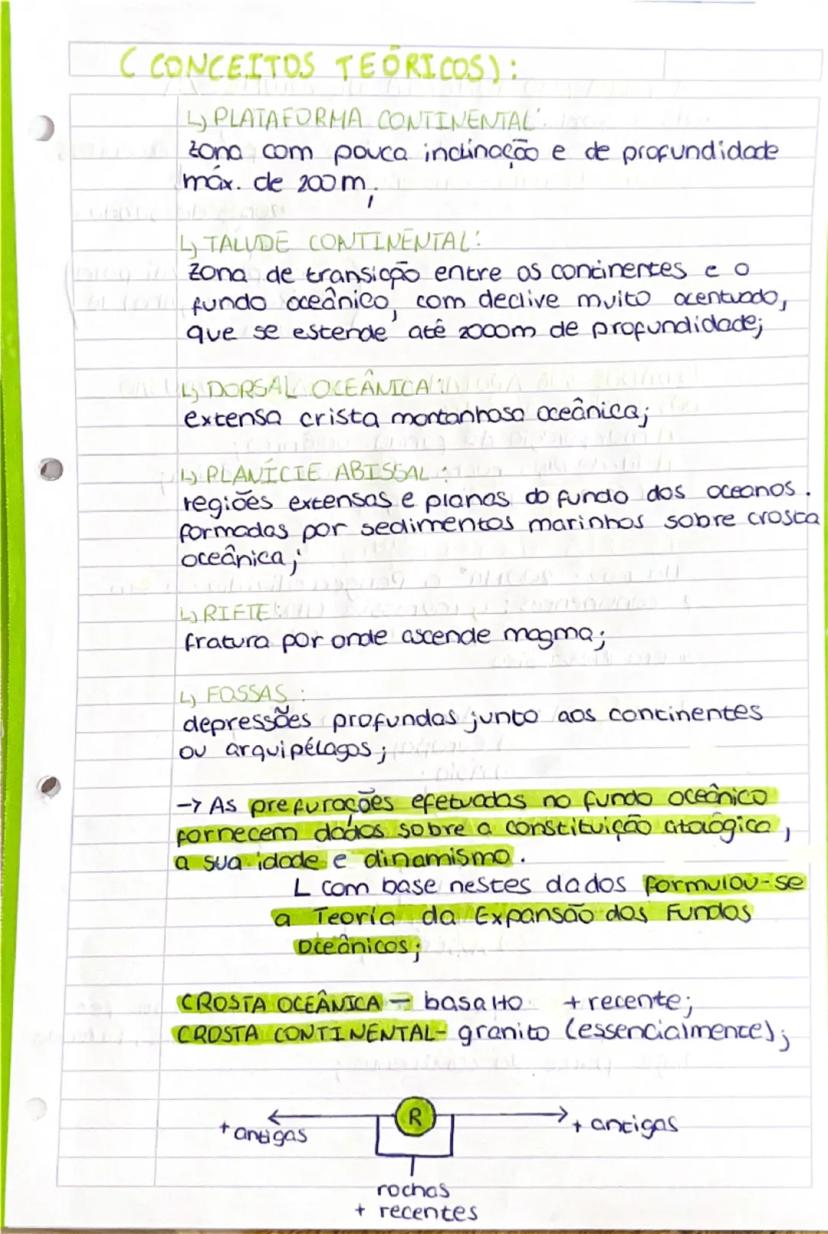 ( CONCEITOS TEÓRICOS):
↳ PLATAFORMA CONTINENTAL:
zona com pouca inclinação e de profundidade
máx. de 200m;
↳ TALUDE CONTINENTAL:
zona de transição entre os continentes e o
fundo oceânico, com declive muito acentuado,
que se estende até 2000m de profundidade;
↳ DORSAL OCEÂNICA:
extensa crista montanhosa oceânica;
↳ PLANÍCIE ABISSAL:
regiões extensas e planas do fundo dos oceanos.
formadas por sedimentos marinhos sobre crosta
oceânica;
↳ RIFTE:
fratura por onde ascende magma;
↳ FOSSAS:
depressões profundas junto aos continentes
ou arquipélagos;
→ As prefurações efetuadas no fundo oceânico
fornecem dados sobre a constituição citológica,
a sua idade e dinamismo.
L com base nestes dados formulou-se
a Teoria da Expansão dos Fundos
Oceânicos;
CROSTA OCEÂNICA — basalto + recente;
CROSTA CONTINENTAL- granito (essencialmente);
R
+ antigas + antigas
rochas
+ recentes